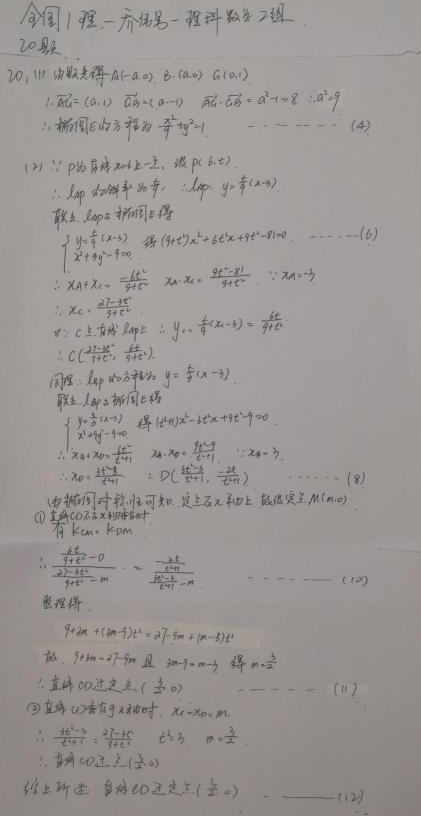 全国1理-乔伟男-理科数学2组
20题
20, (1) 由题意得 A(-a.0). B.(a.0) G(0.1)
∴ AG=(a,1) GB=(a,-1) AG·GB=a²-1=8 ∴a²=9
∴椭圆E的方程为 x²/9+y²=1 ------- (4)
(2) ∵ P为直线x=6上一点, 设P(6.t)
∴ lAP 的斜率为 t/9, ∴lAP: y=t/9(x-3)
联立 lAP与椭圆E得
{ y=t/9(x-3) 得(9+t²)x²+6t²x+9t²-81=0 ------(6)
x²+9y²-9=0
∴ xA+xC=-6t²/9+t² xA·xC=9t²-81/9+t² ∵xA=-3
∴ xC=27-3t²/9+t²
又∵ C点在直线lAP上 ∴ yC=t/9(xC-3)=6t/9+t²
∴ C(27-3t²/9+t², 6t/9+t²)
同理: lBP的方程为 y=t/3(x-3)
联立 lBP与椭圆E得
{ y=t/3(x-3) 得(t²+1)x²-6t²x+9t²-9=0
x²+9y²-9=0
∴ xB+xD=6t²/t²+1 xB·xD=9t²-9/t²+1 ∵xB=3
∴xD=3t²-3/t²+1 ∴ D(3t²-3/t²+1, -2t/t²+1) ------ (8)
由椭圆对称性可知. 定点在x轴上, 故设定点M(m.0)
①直线CD不与x轴垂直时
有 KCM=KDM
∴ (6t/9+t²-0)/(27-3t²/9+t²-m) = (-2t/t²+1)/(3t²-3/t²+1-m) ------- (10)
整理得
9+3m+(3m-9)t²=27-9m+(m-3)t²
故. 9+3m=27-9m 且 3m-9=m-3 得m=3/2
∴直线CD过定点(3/2.0) ----- (11)
②直线CD垂直于x轴时. xC=xD=m
∴ 3t²-3/t²+1=27-3t²/9+t² t²=3 m=3/2
∴ 直线CD过点(3/2.0)
综上所述 直线CD过定点(3/2.0) ------(12)